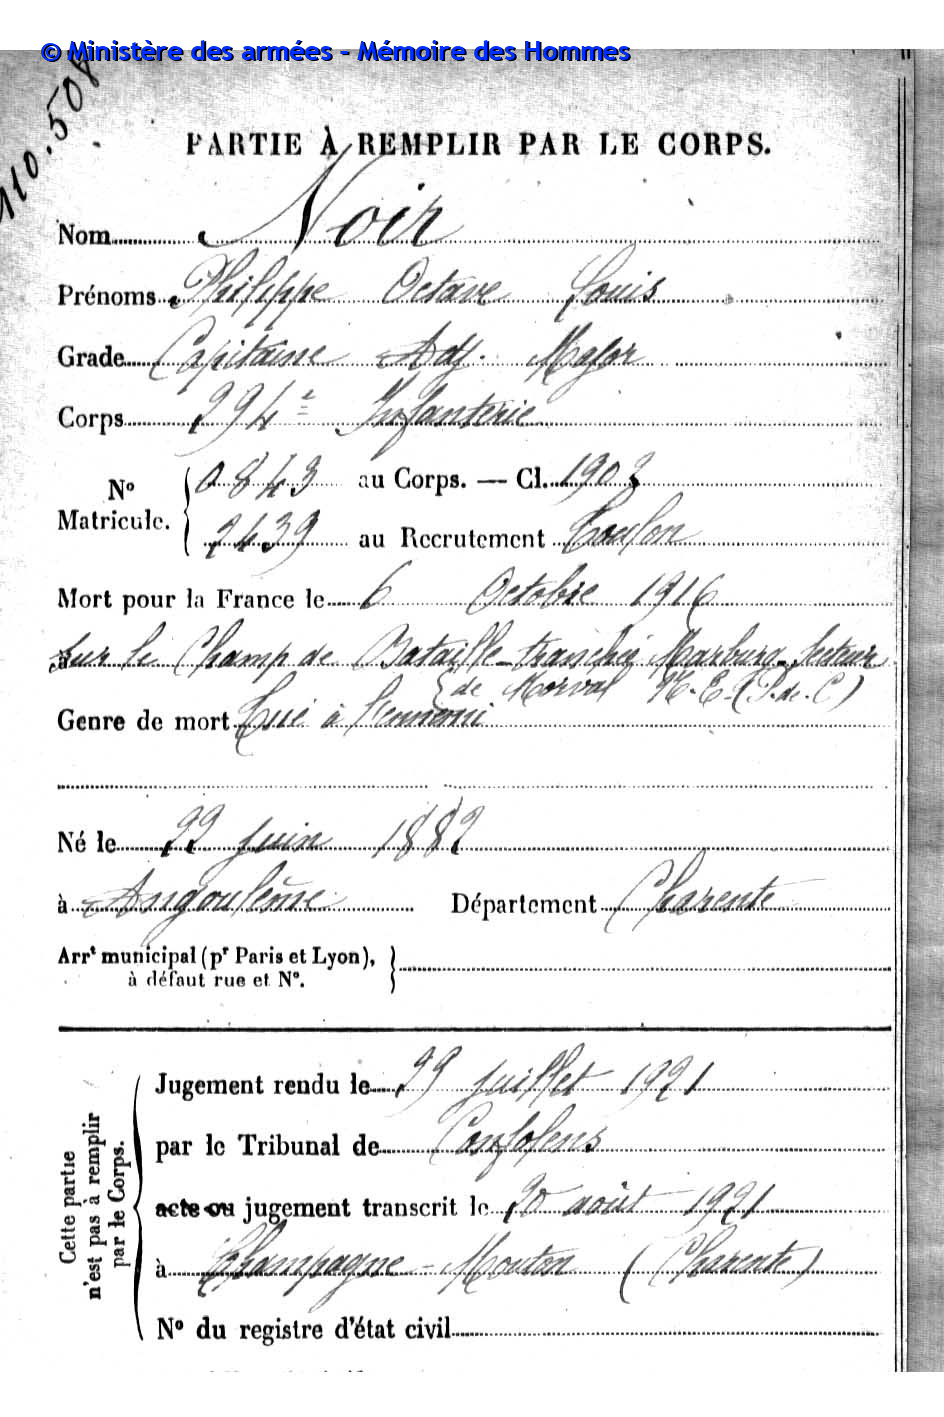 © Ministère des armées - Mémoire des Hommes
110.508
PARTIE À REMPLIR PAR LE CORPS.
Nom Noir
Prénoms Philippe Octave Louis
Grade Capitaine Adj. Major
Corps 294e Infanterie
No Matricule. { 0843 au Corps. — Cl. 1902
2439 au Recrutement Toulon
Mort pour la France le 6 Octobre 1916
à sur le Champ de Bataille - tranchée Marburg - Secteur
(de Morval N.E. (P. de. C)
Genre de mort Tué à l'ennemi
Né le 22 Juin 1882
à Angoulême Département Charente
Arrt municipal (pr Paris et Lyon),
à défaut rue et No.
Cette partie n'est pas à remplir par le Corps.
Jugement rendu le 29 juillet 1921
par le Tribunal de Confolens
acte ou jugement transcrit le 20 août 1921
à Champagne-Mouton (Charente)
No du registre d'état civil